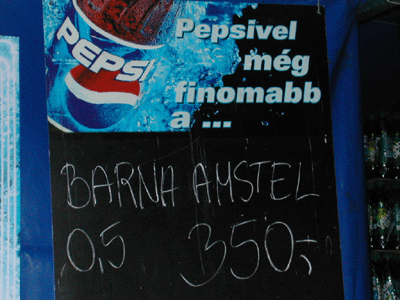 PEPSI
Pepsivel
még
finomabb
a ...
BARNA AMSTEL
0,5 350,-